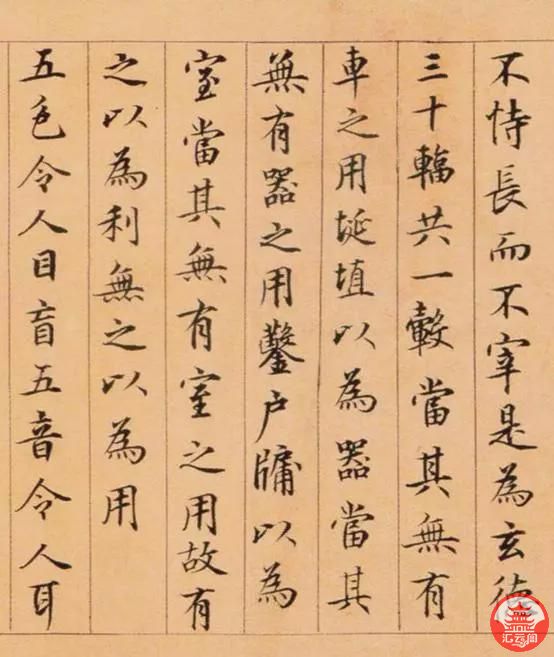 不恃長而不宰是為玄德
三十輻共一轂當其無有
車之用埏埴以為器當其
無有器之用鑿户牖以為
室當其無有室之用故有
之以為利無之以為用
五色令人目盲五音令人耳
汇云阁